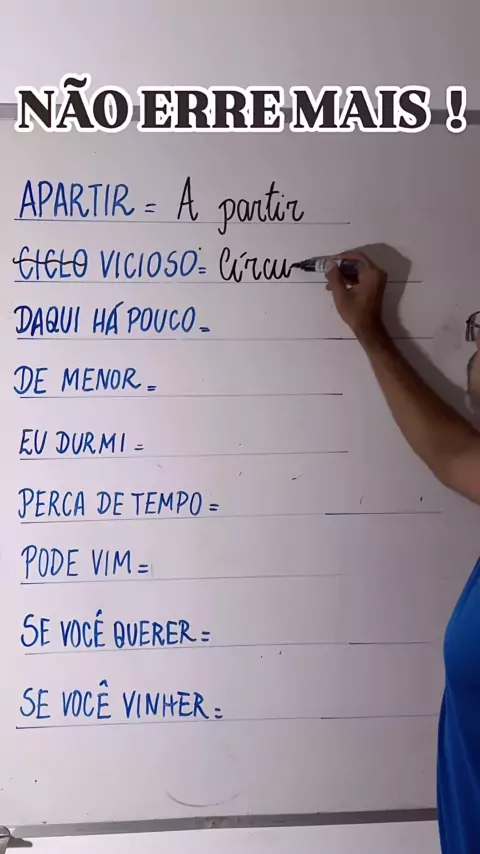 NÃO ERRE MAIS !
APARTIR = A partir
CICLO VICIOSO = Círcu
DAQUI HÁ POUCO =
DE MENOR =
EU DURMI =
PERCA DE TEMPO =
PODE VIM =
SE VOCÊ QUERER =
SE VOCÊ VINHER =